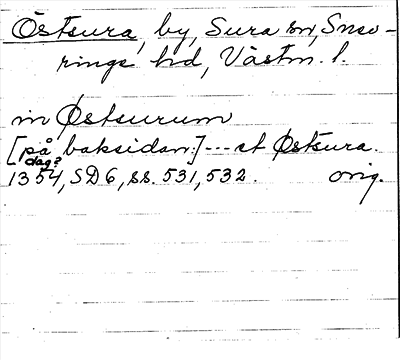 Östsura, by, Sura sn, Sneo-
rings hd, Västm. l.
in Østsurum
[på baksidan:] --- et Østsura.
dag?
1354, SD 6, ss. 531, 532. orig.